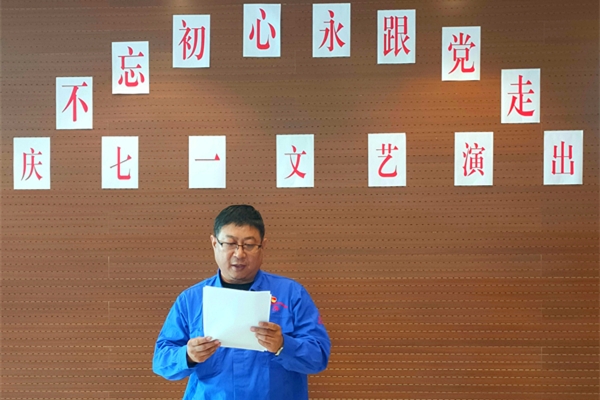 不忘初心永跟党走
庆七一文艺演出